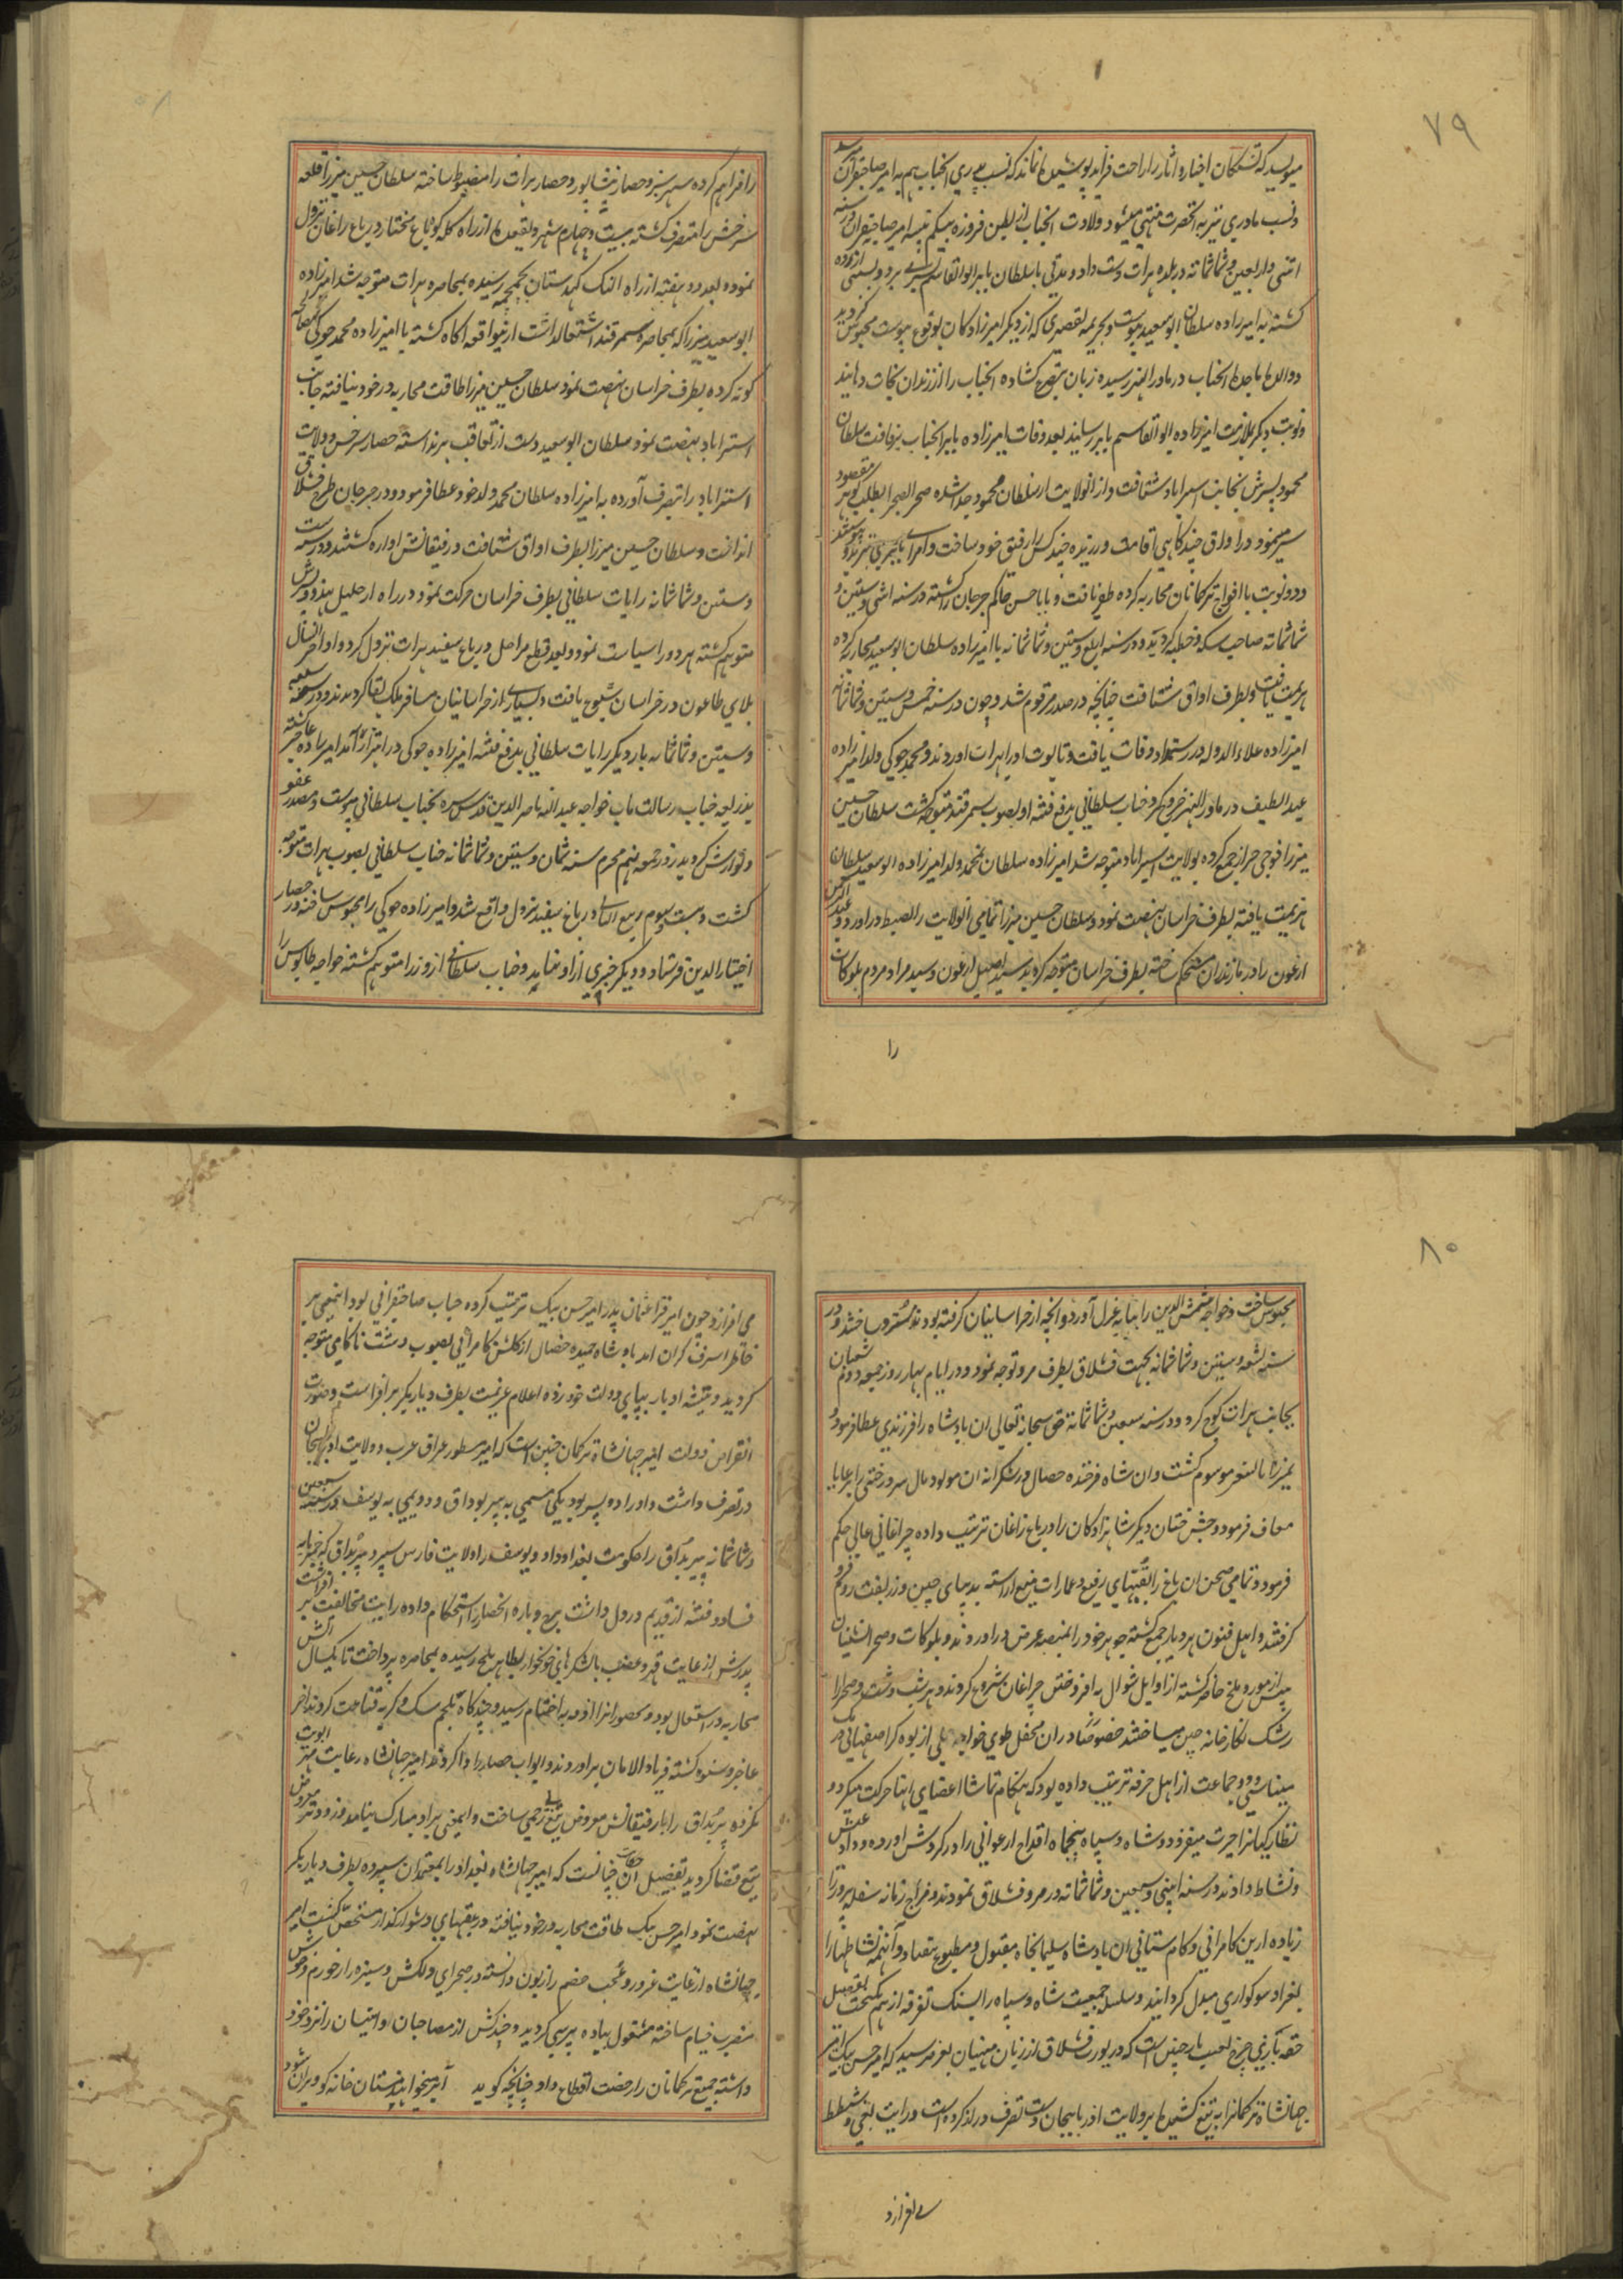 ۷۹
میرسد
مینویسد که تشنکان اخبار و اثار را راحت فزاید پوشیده نماند که نسب پدری انجناب هم به امیر صاحبقران
و نسب مادری نیز به انحضرت منتهی میشود ولادت انجناب از بطن فروزه بیکم نبسه امیر صاحبقران در سنه
اثنی و اربعین و ثماثمائه در بلده هرات دست داد و مدتی با سلطان بابر ابوالقاسم بسر می برد و بسببی ازرده
کشته به امیرزاده سلطان ابوسعید پیوست و بجریمه تقصیری که از دیکر امیرزادکان بوقوع پیوست محبوس کردید
و والده ماجده انجناب در ماوراالنهر رسیده زبان بتضرع کشاده انجناب را از زندان نجات دهانید
و نوبت دیکر بملازمت امیرزاده ابوالقاسم بابر رسانید بعد وفات امیرزاده بابر انجناب برفاقت سلطان
محمود پسرش بجانب استراباد شتافت و از انولایت از سلطان محمود جدا شده صحرا بصحرا بطلب کوهر مقصود
سیر مینمود و در اواق چند کاهی اقامت ورزیده چند کس را رفیق خود ساخت و امرای بابری نیز بدو پیوستند
و دو نوبت با افواج ترکمانان محاربه کرده ظفر یافت و بابا حسن حاکم جرجان را کشته در سنه اثنی و ستین و
ثماثمائه صاحب سکه و خطبه کردید و در سنه اربع و ستین و ثماثمائه با امیرزاده سلطان ابوسعید محاربه کرده
هزیمت یافت و بطرف اواق شتافت چنانچه در صدر مرقوم شد و چون در سنه خمس و ستین و ثماثمائه
امیرزاده علاءالدوله در رستمدار وفات یافت و تابوت او را بهرات اوردند و محمد جوکی ولد امیرزاده
عبدالطیف در ماوراالنهر خروج کرد جناب سلطانی بدفع فتنه او بصوب سمرقند متوجه کشت سلطان حسین
میرزا فوجی جرار جمع کرده بولایت استراباد متوجه شد امیرزاده سلطان محمد ولد امیرزاده ابوسعید سلطان
هزیمت یافته بطرف خراسان نهضت نمود و سلطان حسین میرزا تمامی انولایت را بضبط در اورد و عبدالرحمن
ارغون را در مازندران مستحکم ساخته بطرف خراسان متوجه کردید سید اصیل ارغون و سید مراد مردم بلوکات
را
را فراهم کرده شهر سبزوار حصار نیشاپور و حصار هرات را مضبوط ساخته سلطان حسین میرزا قلعه
سرخس را متصرف کشته بیست و چهارم شهر ذیقعده از راه کله کو بباغ مختار در باغ زاغان نزول
نمود و بعد دو هفته از راه النک کهدستان بجمجمه رسیده بمحاصره هرات متوجه شد امیرزاده
ابوسعید میرزا که بمحاصره سمرقند اشتغال داشت ازینواقعه اکاه کشته با امیرزاده محمد جوکی بمصالحه
کونه کرده بطرف خراسان نهضت نمود سلطان حسین میرزا طاقت محاربه در خود نیافته جانب
استراباد نهضت نمود سلطان ابوسعید دست از تعاقب برنداشته حصار سرخس و ولایت
استراباد را بتصرف آورده به امیرزاده سلطان محمد ولد خود عطا فرمود و در جرجان طرح قشلاق
انداخت و سلطان حسین میرزا بطرف اواق شتافت و رفیقانش اواره کشتند و در ست
و ستین و ثماثمائه رایات سلطانی بطرف خراسان حرکت نمود و در راه از خلیل هندو و پسرش
متوهم کشته هر دو را سیاست نمود و بعد قطع مراحل در باغ سفید هرات نزول کرد و اواخر انسال
بلای طاعون در خراسان شیوع یافت و بسیاری از خراسانیان مسافر ملک بقا کردیدند و در سبعه
و ستین و ثماثمائه بار دیکر رایات سلطانی بدفع فتنه امیرزاده جوکی در اهتزاز آمد امیرزاده عاجز کشته
بذریعه جناب رسالت ماب خواجه عبدالله ناصرالدین قدس سره بجناب سلطانی پیوست و مصدر عفو
و نوازش کردید روز جمعه نهم محرم سنه ثمان و ستین و ثماثمائه جناب سلطانی بصوب هرات متوجه
کشت و بیست و سیوم ربیع الثانی در باغ سفید نزول واقع شد و امیرزاده جوکی را محبوس ساخته در حصار
اختیارالدین فرستاد و دیکر خبری از او نماید و جناب سلطانی از وزرا متوهم کشته خواجه طاووس را
۸۰
محبوس ساخت و خواجه شمس الدین را بپایه عزل آورد و انچه از خراسانیان کرفته بود بدو مسترد ساختند و در
سنه تسعه و ستین و ثماثمائه بجهت قشلاق بطرف مرو توجه نمود و در ایام بهار روز جمعه دویم شعبان
بجانب هرات کوچ کرد و در سنه سبعین و ثماثمائه حق سبحانه تعالی ان پادشاه را فرزندی عطا فرمود
بمیرزا بالسنغر موسوم کشت و ان شاه فرخنده خصال در شکرانه ان مولود مال سر درختی را برعایا
معاف فرمود و جشن ختنان دیکر شاهزادکان را در باغ زاغان ترتیب داده چراغانی عالی حکم
فرمود و تمامی صحن ان باغ را بقبهای رفیع و عمارات منیع اراسته بدیبای چین و زربفت روم فرو
کرفتند و اهل فنون هر دیار جمع کشته جوهر خود را بمنصه عرض در اوردند و بلوکات و صحرانشینان
بیش از مور و ملخ حاضر کشته از اوایل شوال به افروختن چراغان شروع کردند و هر شب دشت و صحرا را
رشک نکارخانه چین میساختند خصوصا در ان محفل طوی خواجه علی از بوه کر اصفهانی در یک
میناسی و دو جماعت از اهل حرفه ترتیب داده بود که هنکام تماشا اعضای انها حرکت میکرد و
نظارکیانرا حیرت میفزود و شاه و سپاه پنجماه اقداح ارغوانی را در کردش اورده و داد عیش
و نشاط دادند در سنه اثنی و سبعین و ثماثمائه در مرو قشلاق نمودند و مزاج زمانه سفله پرور را
زیاده ازین کامرانی و کام ستانی ان پادشاه سلیمانجاه مقبول و مطبوع نیفتاد و آنهمه نشاطها را
بغزاد سوکواری مبدل کردانید و سلسله جمعیت شاه و سپاه را بسنک تفرقه از هم بکسیخت تفصیل
حقه بازی چرخ لعبت باز چنین است که در یورت قشلاق از زبان منهیان بعرض رسید که امیر حسن بیک امیر
جهانشاه ترکمانرا به تیغ کشیده بر ولایت اذربایجان دست تصرف دراز کرده است و رایت بغی و شطط
می افرازد
می افرازد و چون امیر قرا عثمان پدر امیر حسن بیک تربیت کرده جناب صاحبقرانی بود اینمعنی بر
خاطر اشرف کران امد پادشاه حمیده خصال از کلشن کامرانی بصوب دشت ناکامی متوجه
کردید و تیشه ادبار بپای دولت خود زده اعلام عزیمت بطرف دیاربکر برافراشت و صورت
انقراض دولت امیر جهانشاه ترکمان چنین است که امیر مسطور عراق عرب و ولایت اذربایجان
در تصرف داشت و او را دو پسر بود یکی مسمی به پیر بوداق و دویمی به یوسف در سنه سبعین
و ثماثمائه پیربداق را حکومت بغداد داد و یوسف را ولایت فارس سپرد پیربداق که خیرمایه
فساد و فتنه از قدیم در دل داشت برج و باره انحصار را استحکام داده رایت مخالفت بر افراخت
پدرش از غایت قهر و غضب با لشکرهای خونخوار بظاهر بلخ رسیده بمحاصره پرداخت تا یکسال آتش
محاربه در اشتعال بود و محصورانرا اذوقه به اختتام رسید و چند کاه بلحم سک و کربه قناعت کردند اخر
عاجز و ستوه کشته فریاد الامان براوردند و ابواب حصار را وا کردند امیر جهانشاه رعایت ابوت
نکرده پیربداق را با رفیقانش معروض تیغ بی رحمی ساخت و اینمعنی بر او مبارک نیامد و زودتر معروض
تیغ قضا کردید تفصیل ان حکایت چنانست که امیر جهانشاه بغداد را بمعتمدان سپرده بطرف دیاربکر
نهضت نمود امیر حسن بیک طاقت محاربه در خود نیافته در عقبهای دشوارکذار متحصن کشت امیر
جهانشاه از غایت غرور و عجب خصم را زبون دانسته در صحرای دلکش و سبزه زار خورم و خوش
مضرب خیام ساخته مشغول بباده پرستی کردید و چند کس از مصاحبان و انیسان را نزد خود
داشته جمیع ترکمانان را رخصت اقطاع داد چنانچه کوید آیم بخوابد زمستان خانه کو ویران شود